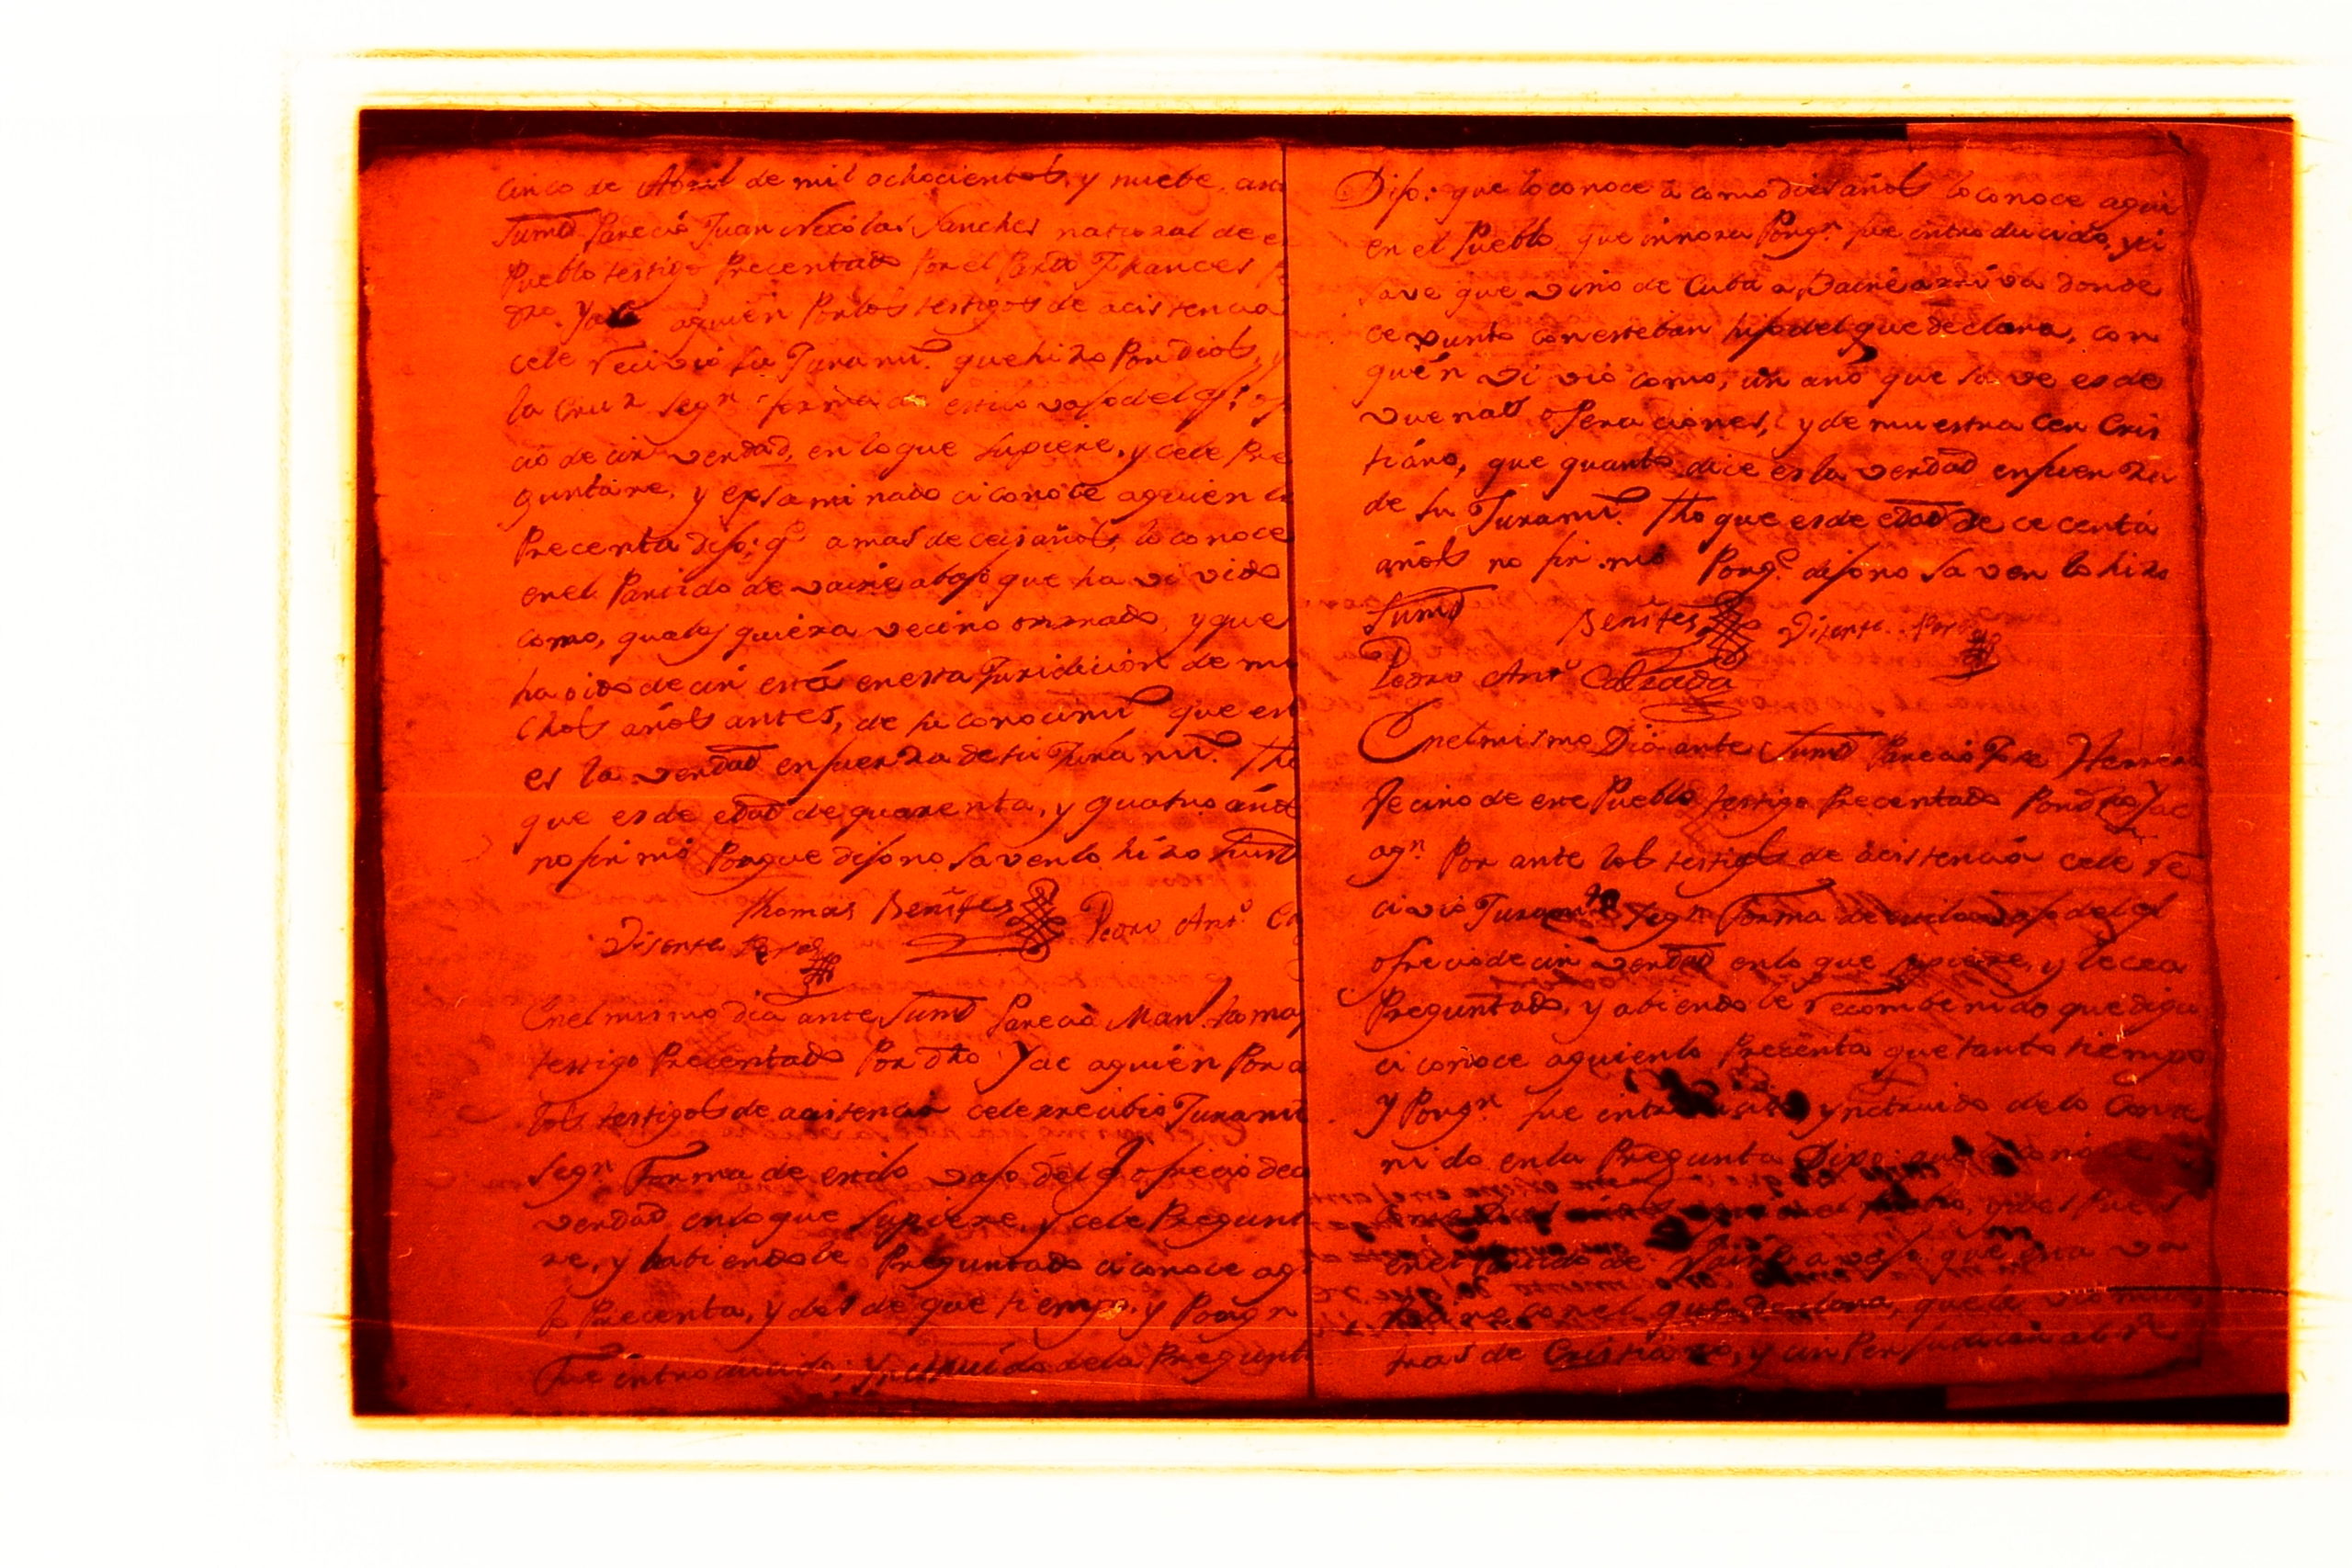 cinco de Abril de mil ochocientos, y nuebe, an
Sumd Parecio Juan Nicolas Sanches natural de e
Pueblo testigo Precentado Por el Pardo Frances
dro. Yac aquien Porlos testigos de acistencia
cele recivio su Juramto. quehizo Pordios, y
la Cruz segn forma de estilo vajo del ql. of
cio decir verdad, en loque supiere, y cele Pre
guntare, y exsaminado ciconoce aquien lo
Precenta dijo; qe amas deceis años, lo conoce
enel Partido de vaire abajo que ha vivido
como, qualquiera vecino onrrado, y que
ha oido decir está enesta Juridicion de mu
chos años antes, de su conocimto que es
es la verdad enfuerza desu Juramto. tho
que esde edad de quarenta, y quatro años
nofirmó Porque dijo no saverlo hizo Sumd
Thomas Benites
Pedro Anto. Ca
Enelmismo dia ante Sumd Parecio Manl. tomas
testigo Precentado Por dho Yac aquien Por a
los testigos de acistencia celerrecibio Juramto
segn Forma de estilo vajo del ql ofrecio deci
verdad enloque supiere, y cele Pregunt
re, y habiendole Preguntado ciconoce aqn
lo Precenta, y desde que tiempo, y Porqn
Fue introducido; Ynstruido dela Pregunt
Dijo: que loconoce a como dies años loconoce aqui
en el Pueblo que innora Porqn fue introducido, y ci
save que vino de Cuba a Vaire arriva donde
ce punto con esteban hijo del que declara, con
quén vivió como, un ano que save es de
vuenas operaciones, y demuestra cer Cris
tiano, que quanto dice esla verdad enfuerza
de su Juramto. tho que esde edad de cecenta
años no firmó Porqe. dijo no saver lo hizo
Sumd Benites
Pedro Anto Calzada
Enelmismo Dia ante Sumd Parecio Jose Herrera
Vecino de este Pueblo testigo Precentado Pordho Yac
aqn Por ante los testigos de acistencia cele re
civio Juramto segn Forma de estilo vajo del ql
ofreciodecir verdad enlo que supiere, y lecea
Preguntado, y abiendole recombenido que diga
ci conoce aquienlo Precenta que tanto tiempo
Y Porqn fue introducido ynstruido delo Conte
nido enla Pregunta Dixo: que conoce
enel Partido de Vaire avajo que
con el que declara, que le
tras de Cristiano, y cin Perjudicar